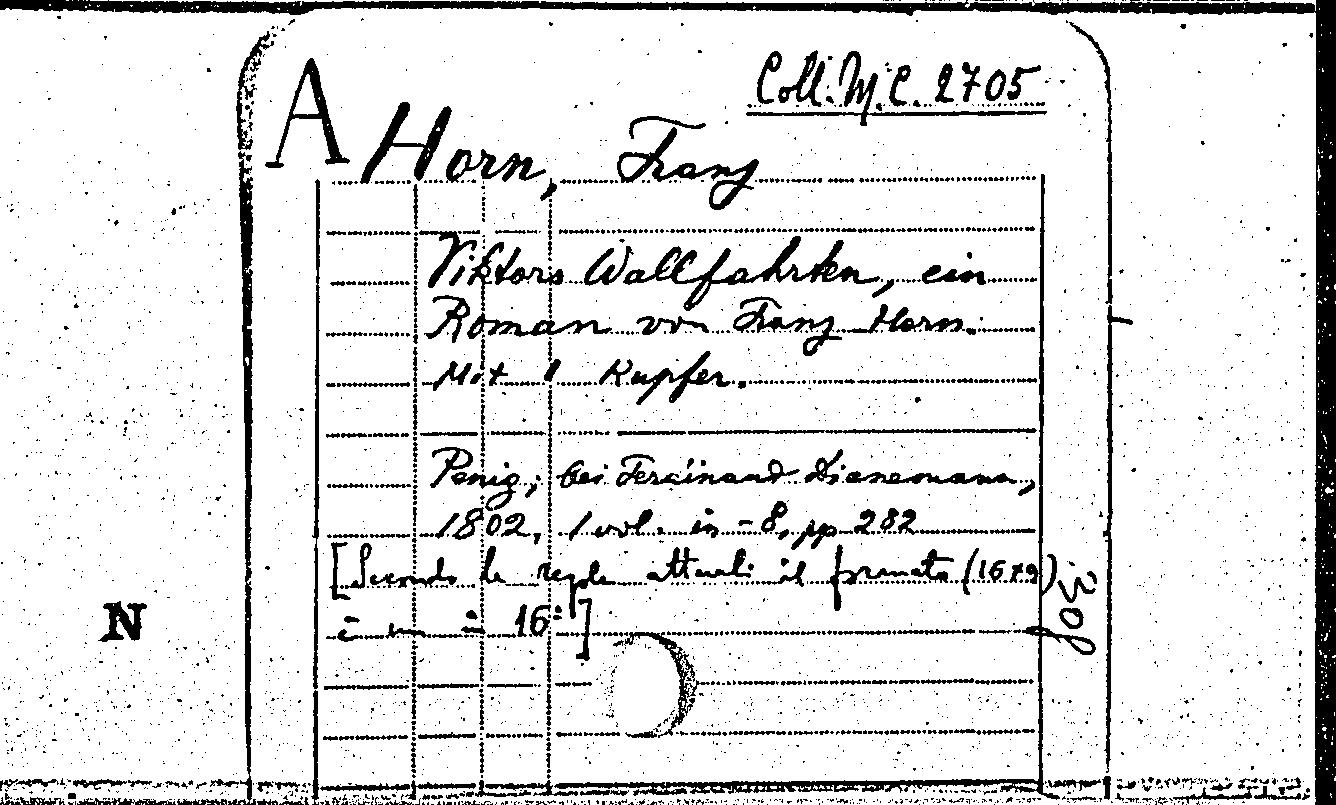 Coll. M.C. 2705
A Horn, Franz
Viktors Wallfahrten, ein
Roman von Franz Horn.
Mit 1 Kupfer.
Penig, bei Ferdinand Dienemann,
1802, 1 vol. in-8, pp 282
[Secondo le regole attuali il formato (16x9)
è un in 16°]
308
N